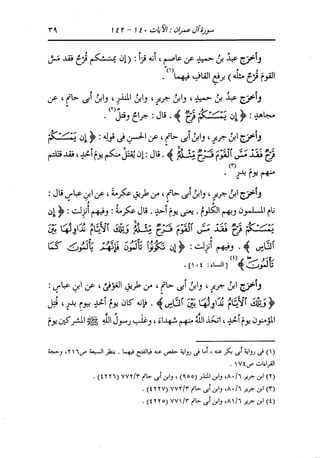 سورة آل عمران : الآيات ١٤٠ - ١٤٢
٣٩
وأخرَج عبدُ بنُ حميدٍ عن عاصمٍ ، أنه قرَأ : (إن يمسَسْكم قُرْح فقد مسَّ
القومَ قُرْح مثله) برفعِ القافِ فيهما(١) .
وأخرَج عبدُ بنُ حميدٍ ، وابنُ جريرٍ ، وابنُ المنذرِ ، وابنُ أبى حاتمٍ ، عن
مجاهدٍ : ﴿ إِن يَمْسَسْكُمْ قَرْحٌ ﴾ . قال : جراحٌ وقتلٌ(٢) .
وأخرَج ابنُ جريرٍ ، وابنُ أبى حاتمٍ ، عن الحسنِ فى قولِه : ﴿ إِن يَمْسَسْكُمْ
قَرْحٌ فَقَدْ مَسَّ ٱلْقَوْمَ قَرْحٌ مِّثْلُهُ ﴾ . قال : إن يُقتَلْ منكم يومَ أُحدٍ ، فقد قتَلتم
منهم يومَ بدرٍ(٣) .
وأخرَج ابنُ جريرٍ ، وابنُ أبى حاتمٍ ، من طريقِ عكرمةَ ، عن ابنِ عباسٍ قال :
نام المسلمون وبهم الكُلومُ . يعنى يومَ أحدٍ . قال عكرمةُ : وفيهم أُنزِلت : ﴿ إِن
يَمْسَسْكُمْ قَرْحٌ فَقَدْ مَسَّ ٱلْقَوْمَ قَرْحٌ مِّثْلُهُ وَتِلْكَ ٱلْأَيَّامُ نُدَاوِلُهَا بَيْنَ
ٱلنَّاسِ ﴾ . وفيهم أُنزِلت : ﴿ إِن تَكُونُوا۟ تَأْلَمُونَ فَإِنَّهُمْ يَأْلَمُونَ كَمَا
تَأْلَمُونَ ﴾(٤) [النساء : ١٠٤] .
وأخرَج ابنُ جريرٍ ، وابنُ أبى حاتمٍ ، من طريقِ العوفىِّ ، عن ابنِ عباسٍ :
﴿ وَتِلْكَ ٱلْأَيَّامُ نُدَاوِلُهَا بَيْنَ ٱلنَّاسِ ﴾ . فإنه كان يومُ أُحدٍ بيومِ بدرٍ ، قُتِل
المؤمنون يومَ أُحدٍ ، اتخَذ اللهُ منهم شهداءَ ، وغلَب رسولُ اللهِ ﷺ المشركين يومَ
(١) فى رواية أبى بكر عنه ، أما فى رواية حفص عنه فبالفتح فيهما . ينظر السبعة ص٢١٦، وحجة
القراءات ص١٧٤ .
(٢) ابن جرير ٨٠/٦، وابن المنذر (٩٥٥) ، وابن أبى حاتم ٧٧٢/٣ (٤٢٢٦) .
(٣) ابن جرير ٨٠/٦، وابن أبى حاتم ٧٧٢/٣ (٤٢٢٧) .
(٤) ابن جرير ٨١/٦، وابن أبى حاتم ٧٧١/٣ (٤٢٢٥) .